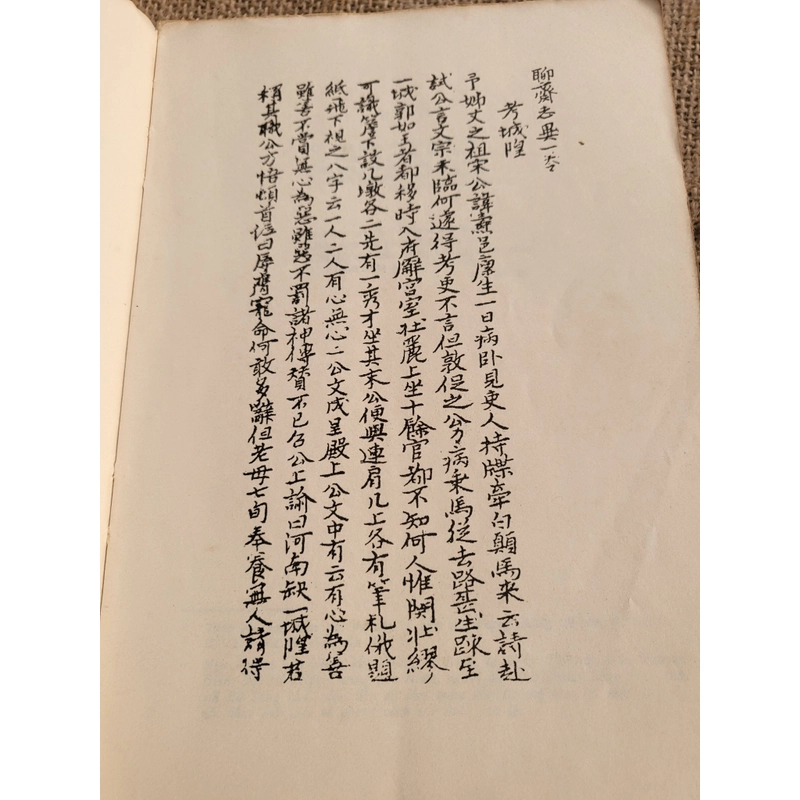 聊齋志異一卷
考城隍
予姊丈之祖宋公諱燾邑廩生一日病卧見吏人持牒牽白顛馬來云請赴
試公言文宗未臨何遽得考吏不言但敦促之公力病乘馬從去路甚生踈至
一城郭如王者都移時入府廨宮室壯麗上坐十餘官都不知何人惟関壯繆
可識簷下設几墩各二先有一秀才坐其末公便與連肩几上各有筆札俄題
紙飛下視之八字云一人二人有心無心二公文成呈殿上公文中有云有心為善
雖善不賞無心為惡雖惡不罰諸神傳贊不已召公上諭曰河南缺一城隍君
稱其職公方悟頓首泣曰辱膺寵命何敢多辭但老母七旬奉養無人請得